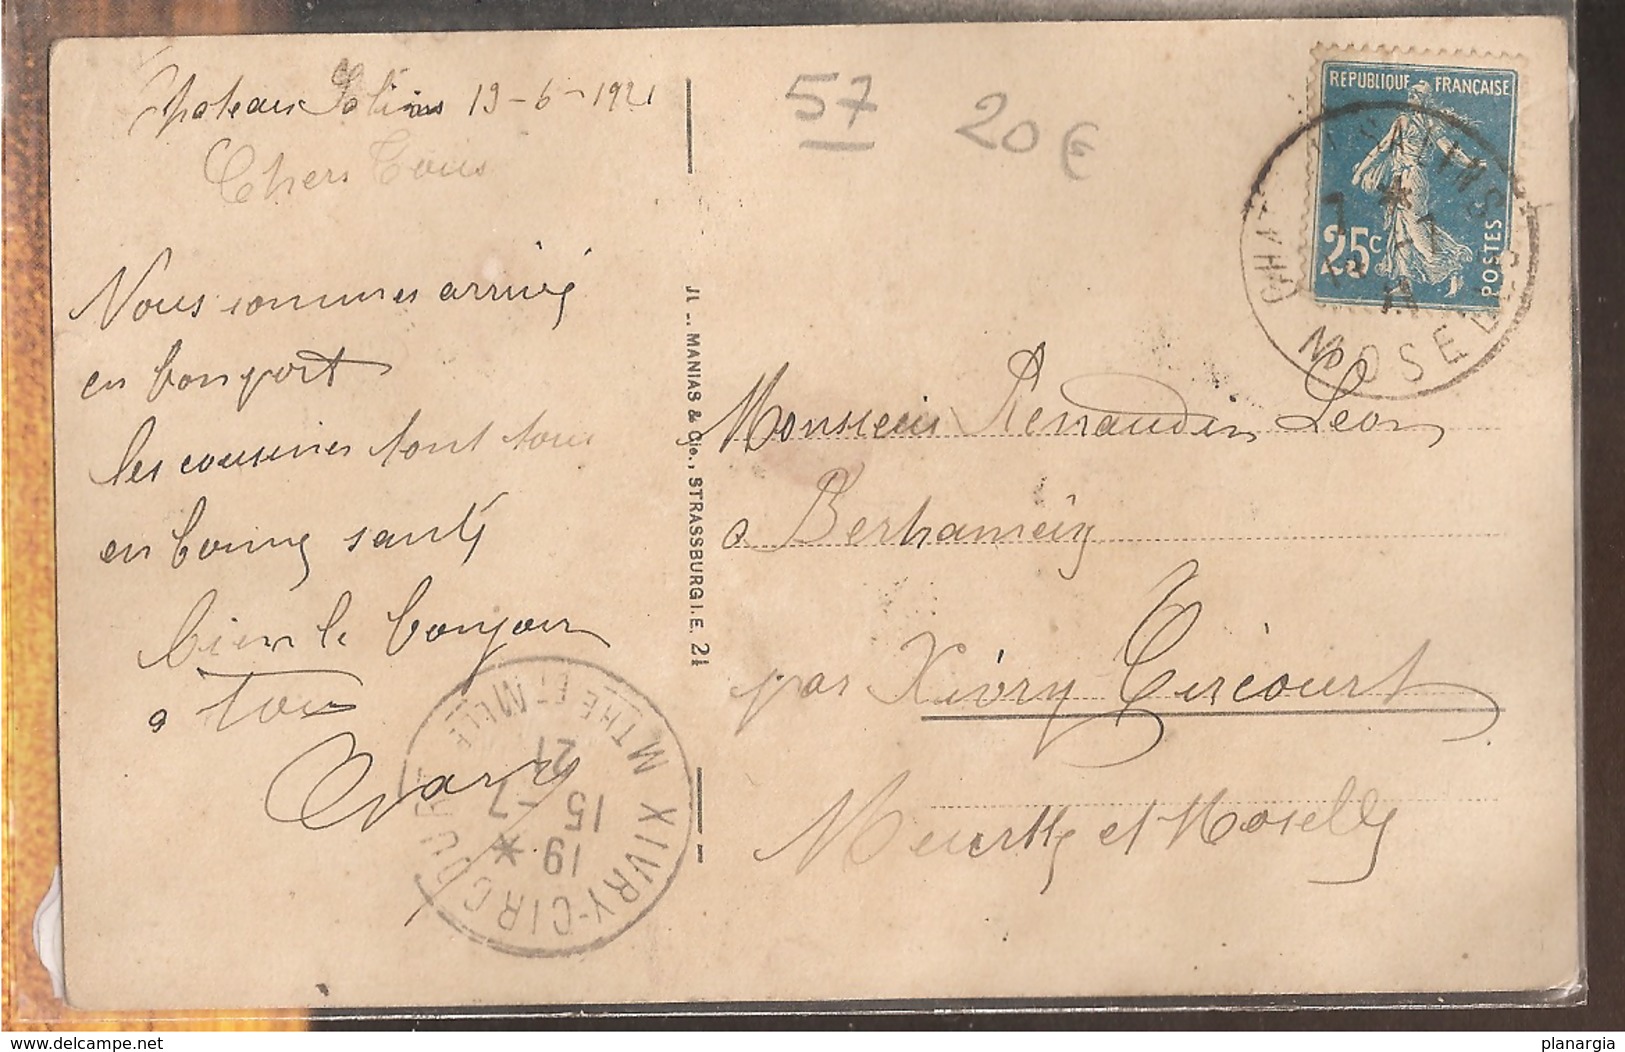 Chateau Salins 13-6-1921
Chers Tous
Nous sommes arrivé
en bon port
les cousines sont tous
en bonne santé
bien le bonjour
a tous
57
20€
JL .. MANIAS & Cie., STRASSBURG I. E. 21
REPUBLIQUE FRANÇAISE
25c
POSTES
CHAT SALINS
MOSELLE
Monsieur Renaudin Leon
a Berhameix
par Xivry Circourt
Meurthe et Moselle
XIVRY-CIRCOURT
MTHE ET MELLE
19 *
15 -7
21
planargia